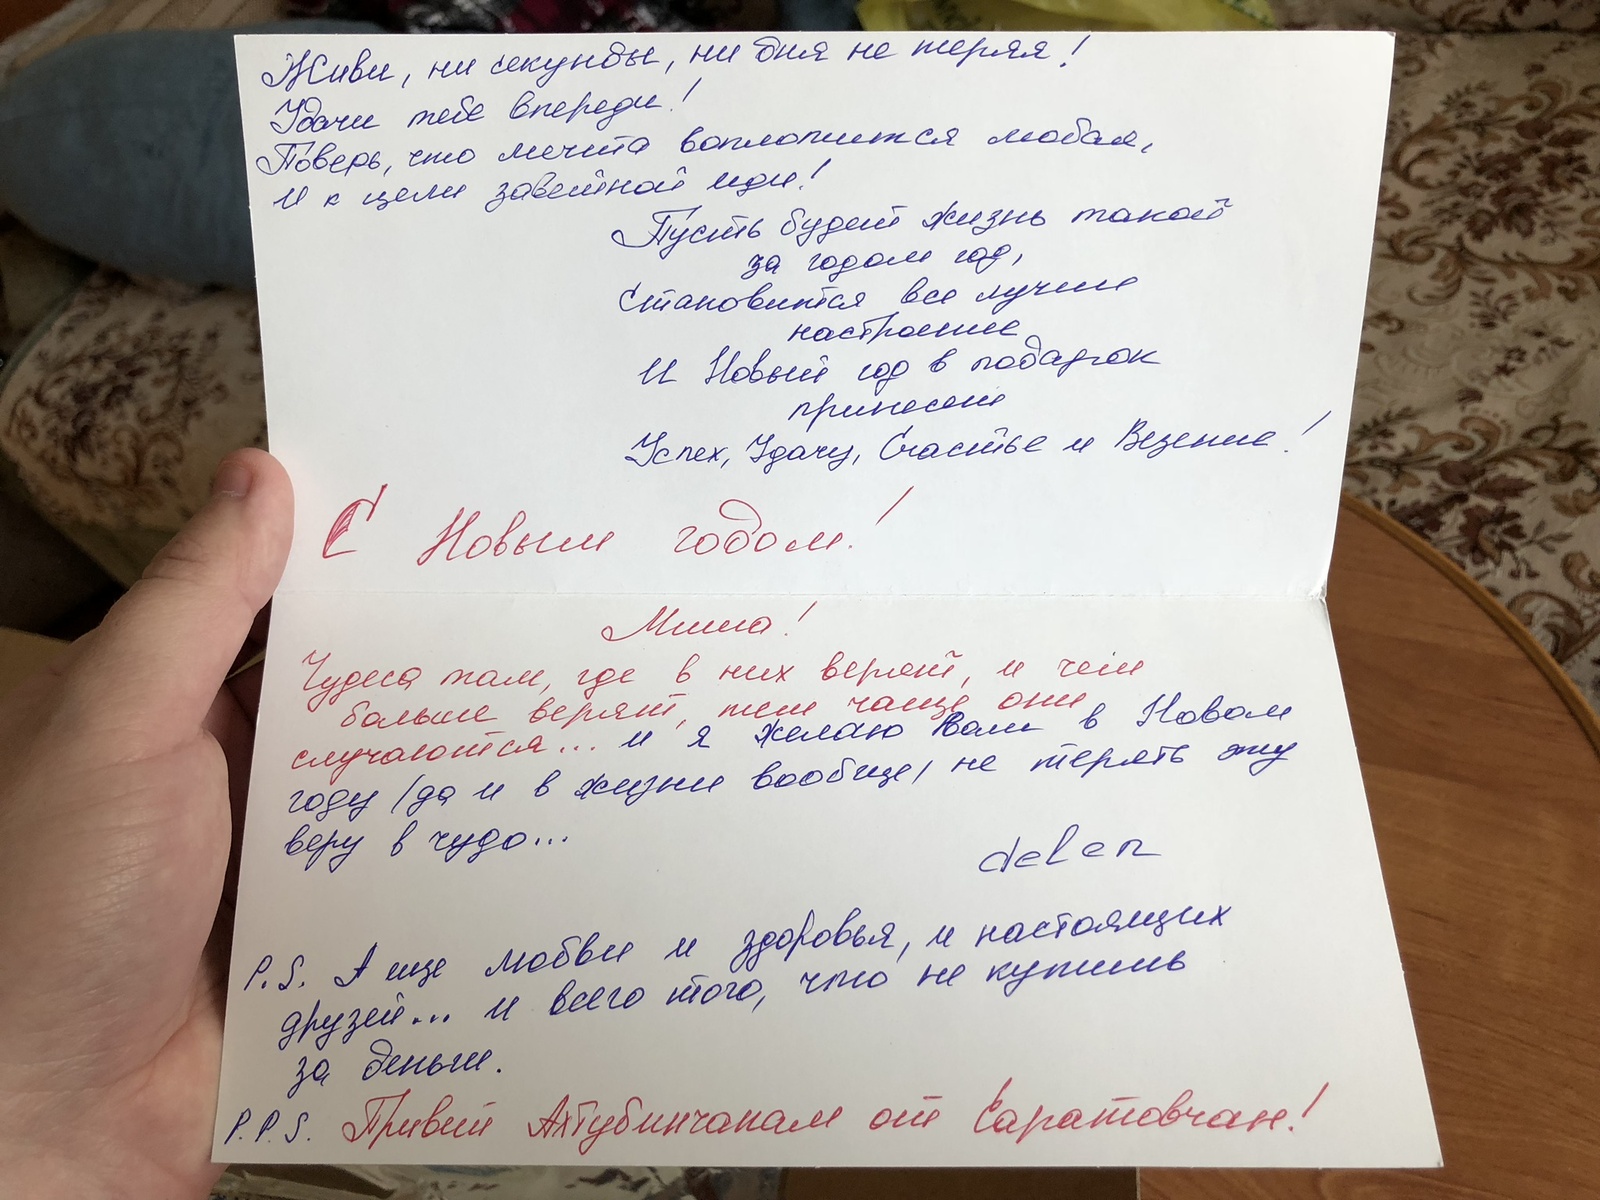 Живи, ни секунды, ни дня не теряя!
Удачи тебе впереди!
Поверь, что мечта воплотится любая,
И к цели заветной иди!
Пусть будет жизнь такой
за годом год,
Становится все лучше
настроение
И Новый год в подарок
принесет
Успех, Удачу, Счастье и Везение!
С Новым годом!
Миша!
Чудеса там, где в них верят, и чем
больше верят, тем чаще они
случаются... и я желаю Вам в Новом
году (да и в жизни вообще) не терять эту
веру в чудо...
delen
P.S. А еще любви и здоровья, и настоящих
друзей... и всего того, что не купишь
за деньги.
P.P.S. Привет Ахтубинчанам от Саратовчан!